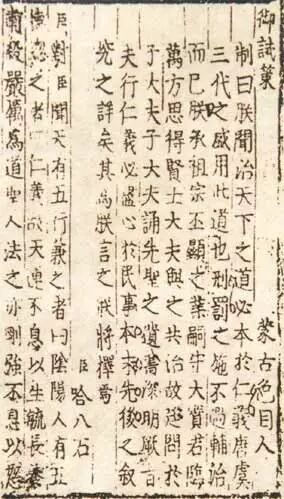 御試策 蒙古色目人
制曰朕聞治天下之道必本於仁義唐虞
三代之盛用此道也刑罰之施不過輔治
而已朕承祖宗丕顯之業嗣守大寶君臨
萬方思得賢士大夫與之共治故延問於
子大夫子大夫誦先聖之遺書深明厥旨
夫行仁義必盡心於民事本末先後之叙
究之詳矣其為朕言之朕將擇焉
臣哈八石
臣對臣聞天有五行兼之者曰陰陽人有五
之者曰仁義故天運不息以生毓長養
肅殺嚴厲為道聖人法之亦剛強不息以